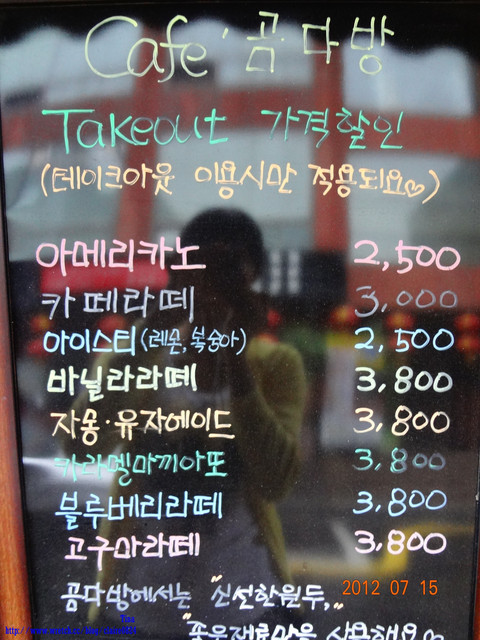 Cafe' 곰다방
Takeout 가격할인
(테이크아웃 이용시만 적용되요♡)
아메리카노 2,500
카페라떼 3,000
아이스티(레몬,복숭아) 2,500
바닐라라떼 3,800
자몽·유자에이드 3,800
카라멜마끼아또 3,800
블루베리라떼 3,800
고구마라떼 3,800
곰다방에서는 "신선한원두,
좋은재료만을 사용해요
2012 07 15